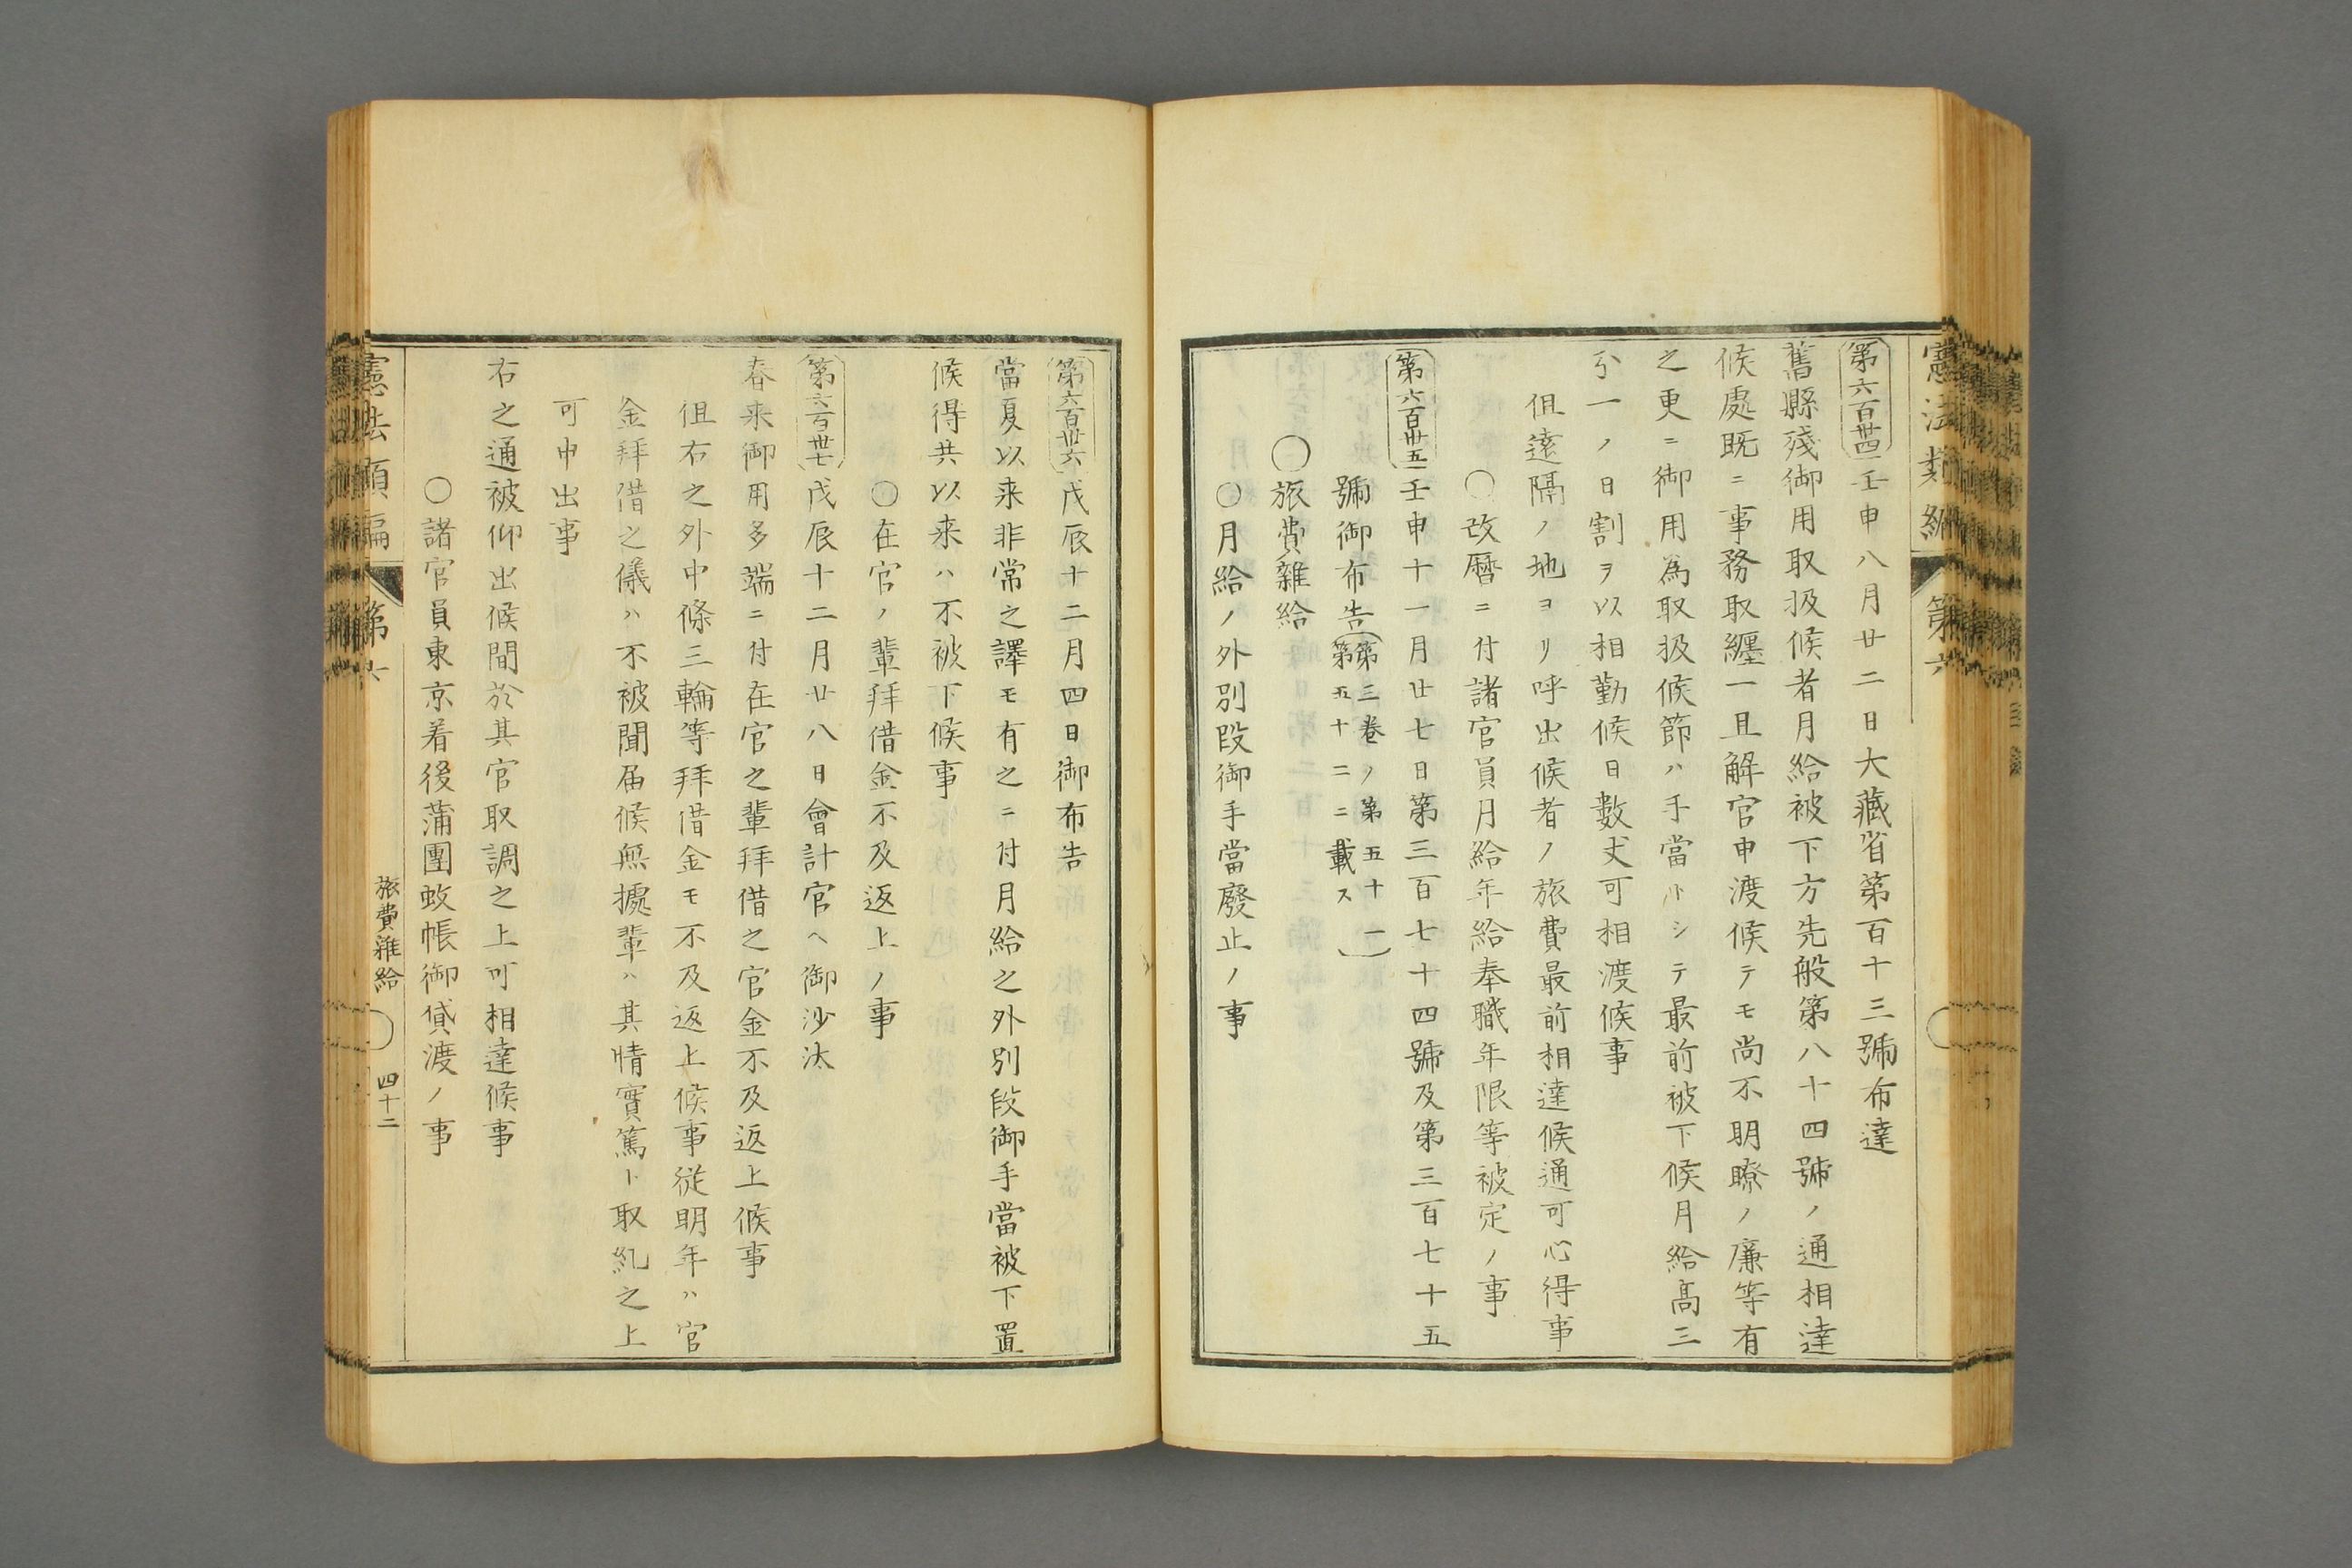 憲法類編 第六
第六百卅四 壬申八月廿二日大藏省第百十三號布達
舊縣殘御用取扱候者月給被下方先般第八十四號ノ通相達
候處既ニ事務取纏一旦解官申渡候テモ尚不明瞭ノ廉等有
之更ニ御用為取扱候節ハ手當トシテ最前被下候月給髙三
分一ノ日割ヲ以相勤候日數丈可相渡候事
但遠隔ノ地ヨリ呼出候者ノ旅費最前相達候通可心得事
○改曆ニ付諸官員月給年給奉職年限等被定ノ事
第六百卅五 壬申十一月廿七日第三百七十四號及第三百七十五
號御布告(第三卷ノ第五十一
第五十二ニ載ス)
○旅費雜給
○月給ノ外別段御手當廢止ノ事
第六百卅六 戊辰十二月四日御布告
當夏以来非常之譯モ有之ニ付月給之外別段御手當被下置
候得共以来ハ不被下候事
○在官ノ輩拜借金不及返上ノ事
第六百卅七 戊辰十二月廿八日會計官ヘ御沙汰
春来御用多端ニ付在官之輩拜借之官金不及返上候事
但右之外中條三輪等拜借金モ不及返上候事從明年ハ官
金拜借之儀ハ不被聞届候無據輩ハ其情實篤ト取糺之上
可申出事
右之通被仰出候間於其官取調之上可相達候事
○諸官員東京着後蒲團蚊帳御貸渡ノ事
憲法類編 第六 旅費雜給 四十二